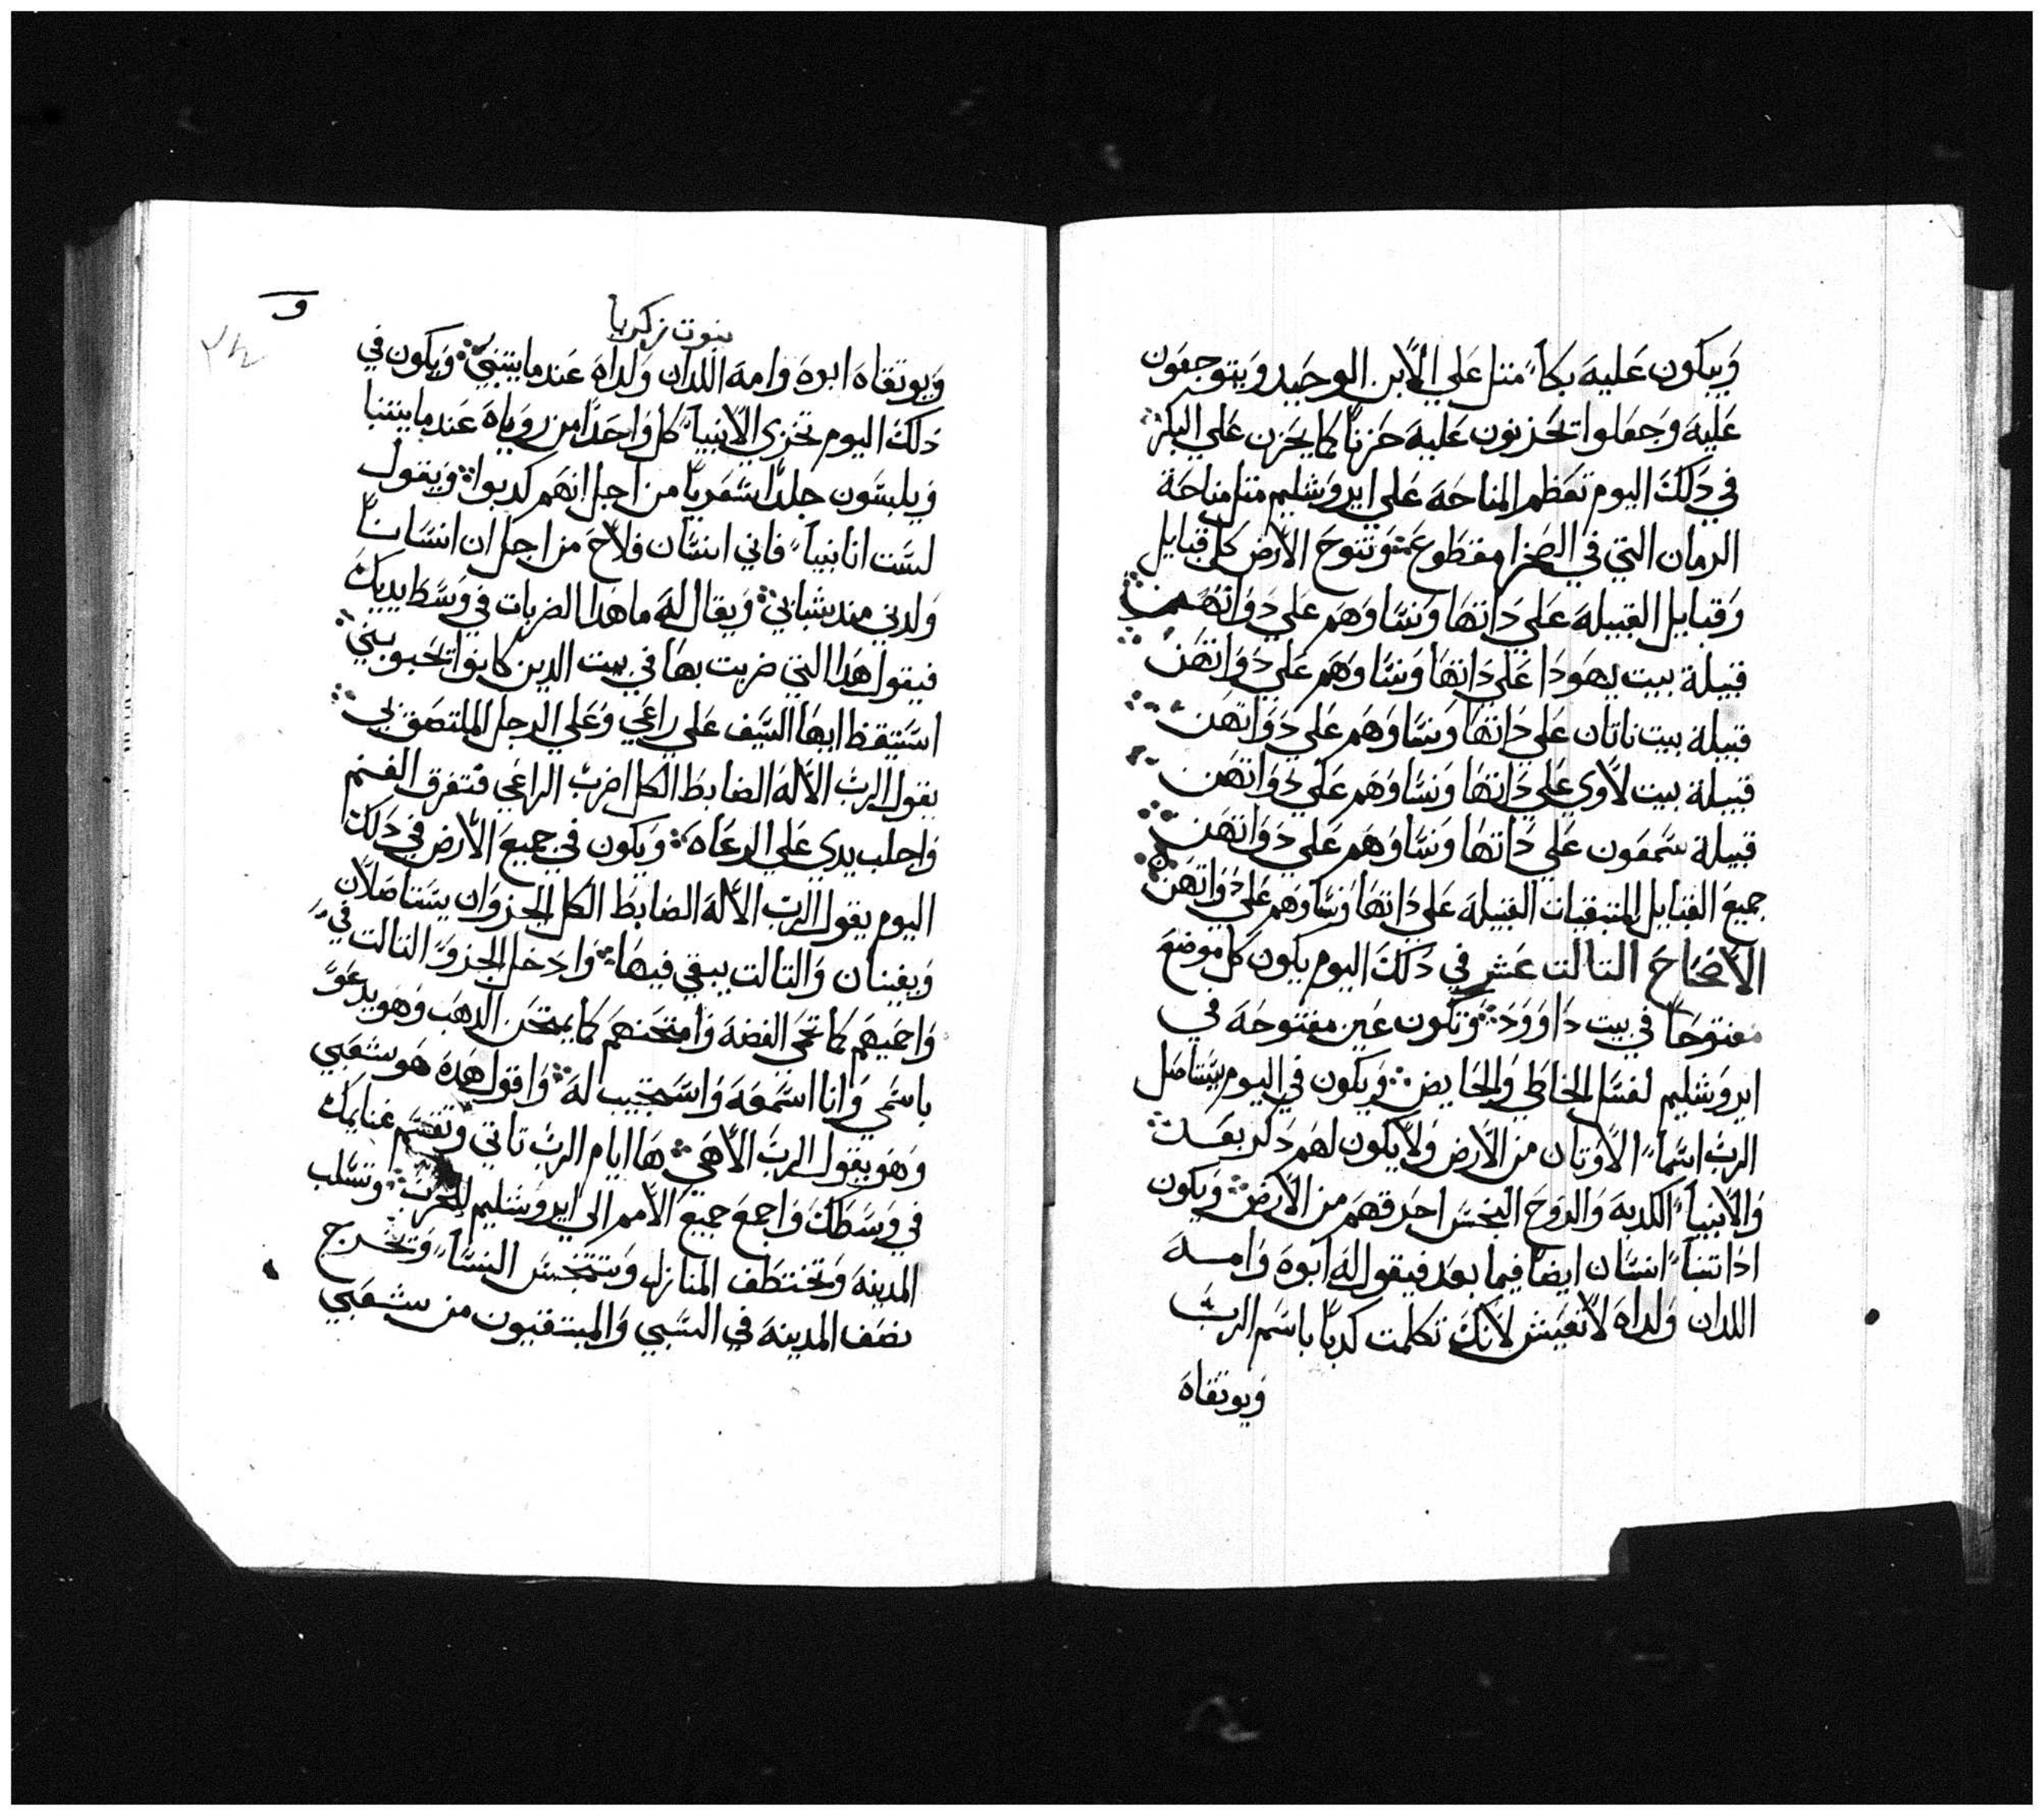 ويبكون عليه بكاً متل علي الابن الوحيد ويتوجعون
عليه وجعلوا تحزنون عليه حزناً كما يحزن علي البكر
في دلك اليوم تعظم المناحة علي ايروشليم متل مناحة
الرمان التي في الصحرا مقطوع وتنوح الارض كل قبايل
وقبايل القبيله علي داتها ونساوهم علي دواتهن
قبيلة بيت يهودا علي داتها ونساوهم علي دواتهن
قبيلة بيت ناتان علي داتها ونساوهم علي دواتهن
قبيلة بيت لاوي علي داتها ونساوهم علي دواتهن
قبيلة سمعون علي داتها ونساوهم علي دواتهن
جميع القبايل المتبقيات القبيله علي داتها ونساوهم علي دواتهن
الاصحاح التالت عشر في دلك اليوم يكون كل موضع
مفتوحاً في بيت داوود وتكون عين مفتوحه في
ايروشليم لغسل الخاطي والحايض ويكون في اليوم يستاصل
الرب اسماً الاوتان من الارض ولا يكون لهم دكر بعد
والانبياً الكدبه والروح النجس احرقهم من الارض ويكون
ادا تنباً انسان ايضاً فيما بعد فيقول له ابوه وامه
اللدان ولداه لا تعيش لانك تكلمت كدباً باسم الرب
ويوتقاه
نبوت زكريا
و
ويوتقاه ابوه وامه اللدان ولداه عندما يتنبي ويكون في
دلك اليوم تخزي الانبياً كل واحداً من روياه عندما يتنبا
ويلبسون جلداً شعرياً من اجل انهم كدبوا ويقول
لست انا نبياً فاني انسان فلاح من اجل ان انساناً
ولدني مند شبابي ويقال له ما هدا الضربات في وسط يديك
فيقول هدا التي ضربت بها في بيت الدين كانوا تحبوبني
استيقظ ايها السيف علي راعي وعلي الرجل الملتصق بي
يقول الرب الاله الضابط الكل اضرب الراعي فتتفرق الغنم
واجلب يدي علي الرعاه ويكون في جميع الارض في دلك
اليوم يقول الرب الاله الضابط الكل الجزوان يستاصلان
ويفنيان والتالت يبقي فيها وادخل الجزو التالت في
واحميهم كما تحمي الفضه وامتحنهم كما يمتحن الدهب وهو يدعو
باسمي وانا اسمعه واستجيب له واقول هده هو شعبي
وهو يقول الرب الاهي ها ايام الرب تاتي وتقسم غنايمك
في وسطك واجمع جميع الامم الي ايروشليم للحرب وتسلب
المدينه وتختطف المنازل وستنجس النساً وتخرج
نصف المدينه في السبي والمبتقيون من شعبي